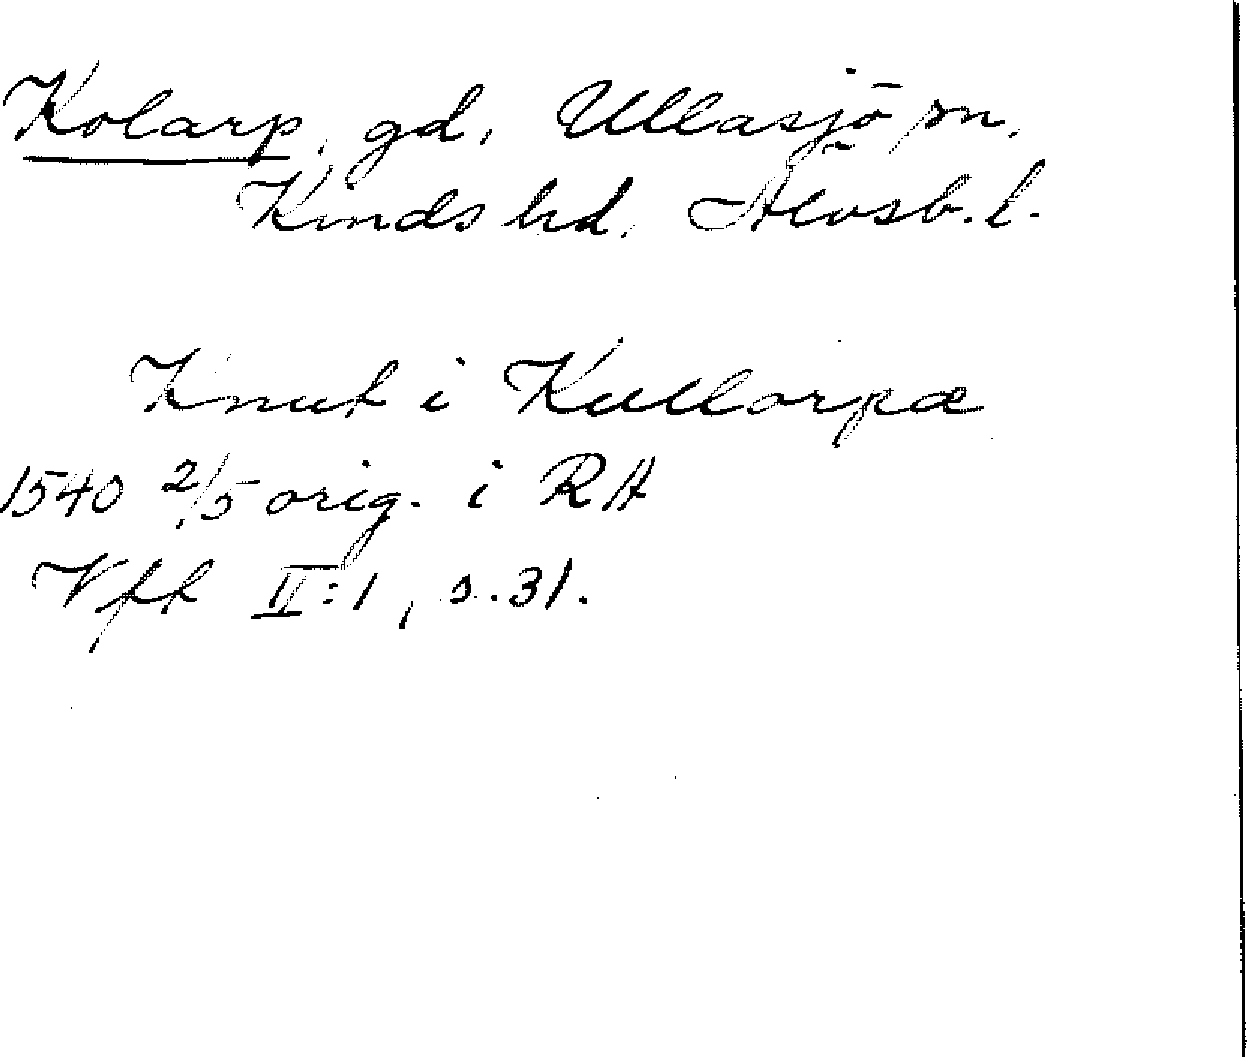 Kolarp, gd, Ullasjö sn.
Kinds hd, Älvsb. l.
Knut i Kullorpæ
1540 2/5 orig. i RA
Vff II:1, s. 31.